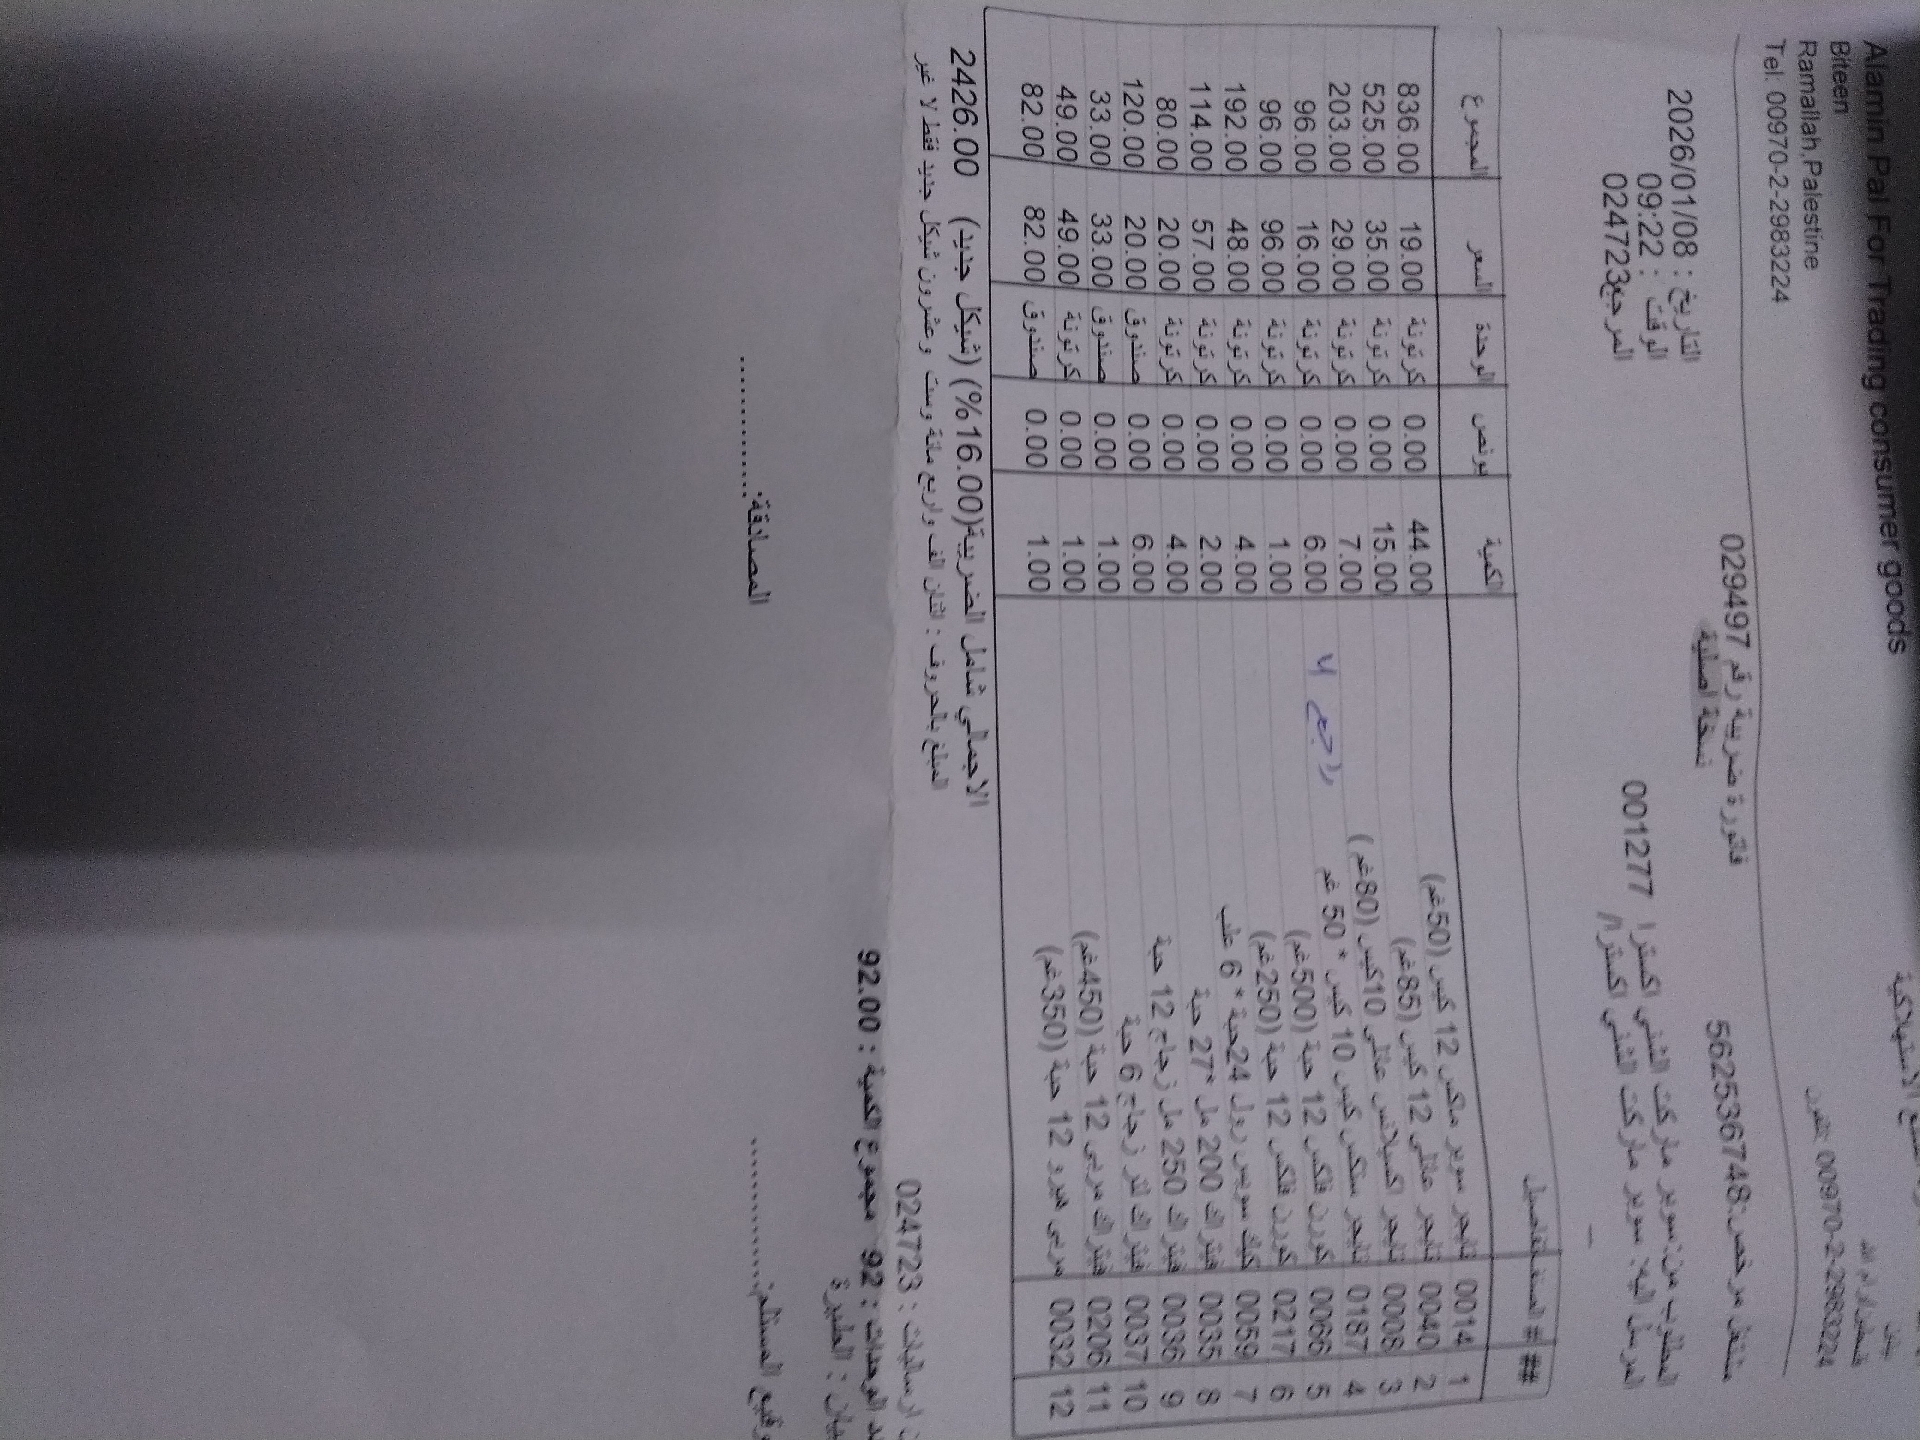 Alamin Pal For Trading consumer goods
Biteen
Ramallah,Palestine
Tel. 00970-2-2983224
00970-2-2983224
مشتغل مرخص:562536748
فاتورة ضريبية رقم 029497
نسخة اصلية
التاريخ : 2026/01/08
الوقت : 09:22
المرجع024723
المطلوب من: سوبر ماركت الشني اكسترا 001277
المرسل اليه: سوبر ماركت الشني اكسترا/
## الصنف# التفاصيل الكمية بونص الوحدة السعر المجموع
1 0014 تايجر سوبر ماكس 12 كيس (50غم) 44.00 0.00 كرتونة 19.00 836.00
2 0040 تايجر عائلي 12 كيس (85غم) 15.00 0.00 كرتونة 35.00 525.00
3 0008 تايجر عائلي 10كيس (80غم) 7.00 0.00 كرتونة 29.00 203.00
4 0187 تايجر ستكس كيس 10 كيس * 50 غم 6.00 0.00 كرتونة 16.00 96.00
راجع
5 0066 كورن فلكس 12 حبة (500غم) 1.00 0.00 كرتونة 96.00 96.00
6 0217 كورن فلكس 12 حبة (250غم) 4.00 0.00 كرتونة 48.00 192.00
7 0059 كيك سويس رول 24حبة * 6 علب 2.00 0.00 كرتونة 57.00 114.00
8 0035 فيتراك 200 مل *27 حبة 4.00 0.00 كرتونة 20.00 80.00
9 0036 فيتراك 250 مل زجاج 12 حبة 6.00 0.00 صندوق 20.00 120.00
10 0037 فيتراك لتر زجاج 6 حبة 1.00 0.00 صندوق 33.00 33.00
11 0206 فيتراك مربى 12 حبة (450غم) 1.00 0.00 كرتونة 49.00 49.00
12 0032 مربى هيرو 12 حبة (350غم) 1.00 0.00 صندوق 82.00 82.00
الاجمالي شامل الضريبة(16.00%) (شيكل جديد) 2426.00
المبلغ بالحروف : اثنان الف واربع مائة وست وعشرون شيكل جديد فقط لا غير
ارساليات : 024723
الوحدات : 92 مجموع الكمية : 92.00
المصادقة:............
المستلم:............